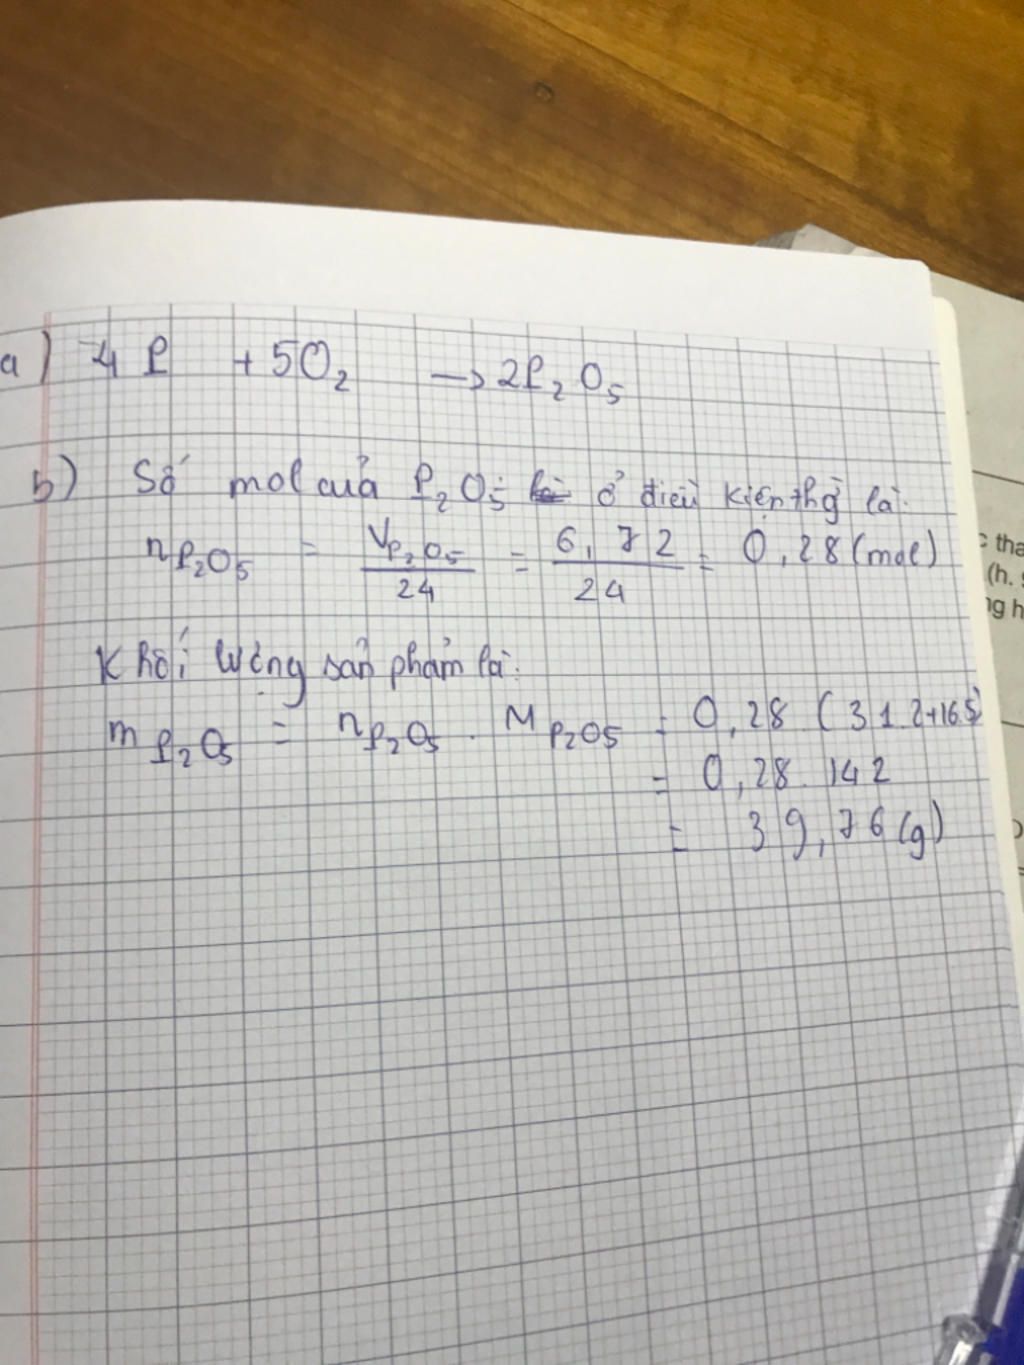 a) 4P + 5O₂ → 2P₂O₅
b) Số mol của P₂O₅ ở điều kiện thg là:
nP₂O₅ = VP₂O₅/24 = 6,72/24 = 0,28 (mol)
Khối lượng sản phẩm là:
mP₂O₅ = nP₂O₅ . MP₂O5 = 0,28 (31.2+16.5)
= 0,28.142
= 39,76 (g)
c tha
(h.
ng h